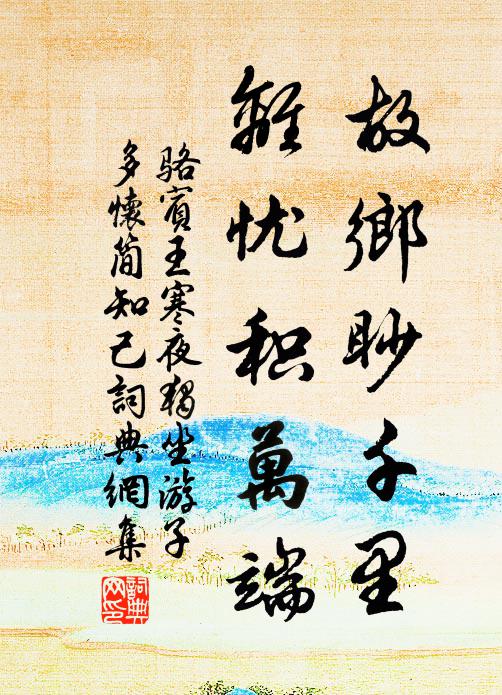 故鄉眇千里
離忧积萬端
骆賓王寒夜獨坐游子
多懷簡知己詞典網集
詞典
网印